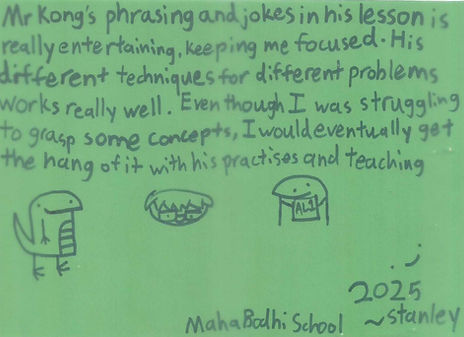 Mr Kong's phrasing and jokes in his lesson is
really entertaining, keeping me focused. His
different techniques for different problems
works really well. Even though I was struggling
to grasp some concepts, I would eventually get
the hang of it with his practises and teaching
AL1
2025
MahaBodhi School ~stanley